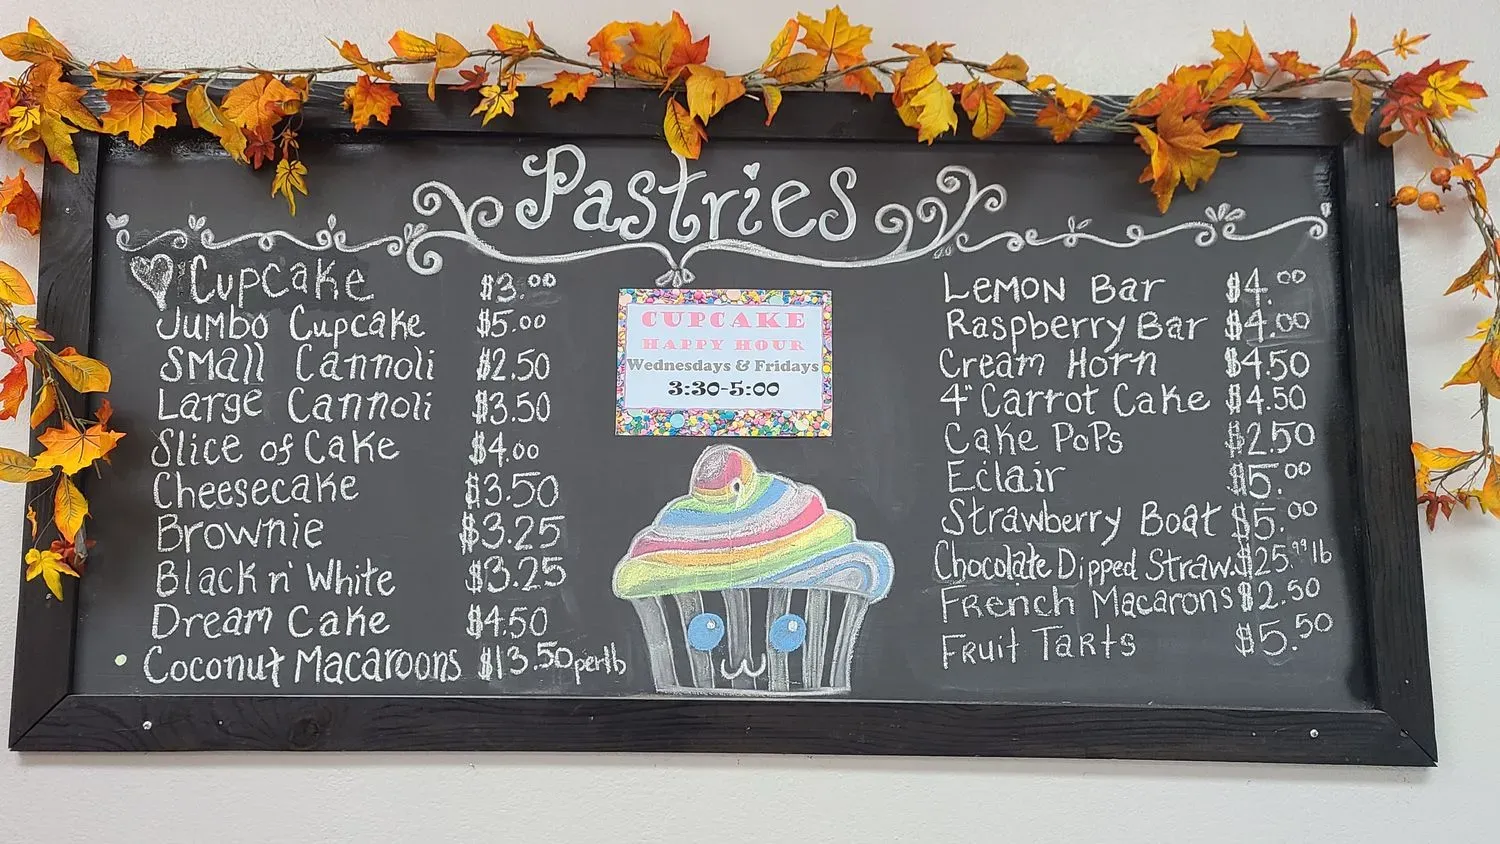 Pastries
Cupcake $3.00
Jumbo Cupcake $5.00
Small Cannoli $2.50
Large Cannoli $3.50
Slice of Cake $4.00
Cheesecake $3.50
Brownie $3.25
Black n' White $3.25
Dream Cake $4.50
Coconut Macaroons $13.50 per lb
CUPCAKE
HAPPY HOUR
Wednesdays & Fridays
3:30-5:00
Lemon Bar $4.00
Raspberry Bar $4.00
Cream Horn $4.50
4" Carrot Cake $4.50
Cake Pops $2.50
Eclair $5.00
Strawberry Boat $5.00
Chocolate Dipped Straw. $25.99 lb
French Macarons $2.50
Fruit Tarts $5.50